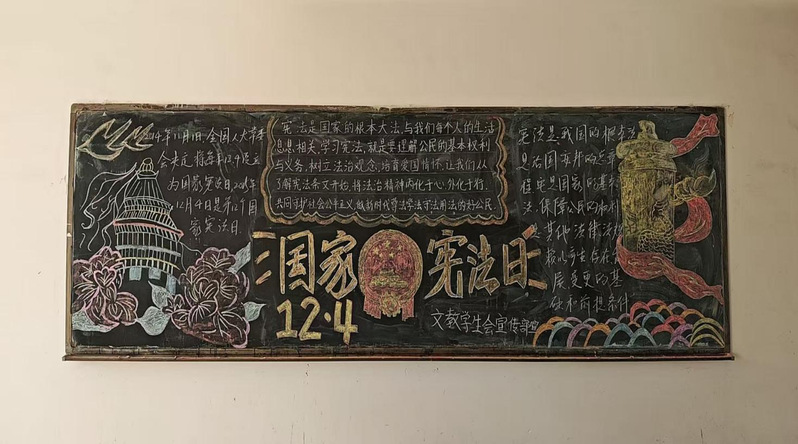 2014年11月1日 全国人大常委
会决定 将每年12.4日设立
为国家宪法日,2025年
12月4日是第12个国
家宪法日.
宪法是国家的根本大法,与我们每个人的生活
息息相关.学习宪法,就是要理解公民的基本权利
与义务,树立法治观念,培育爱国情怀.让我们从
了解宪法条文开始,将法治精神内化于心.外化于行.
共同守护社会公平正义,做新时代尊法学法守法用法的好公民.
国家 宪法日
12·4
文教学生会宣传部
宪法是我国的根本
是治国安邦的总章
程更是国家的
法.保障公民的权利
是其他法律法规
赖以产生存在
展变更的基
础和前提条件